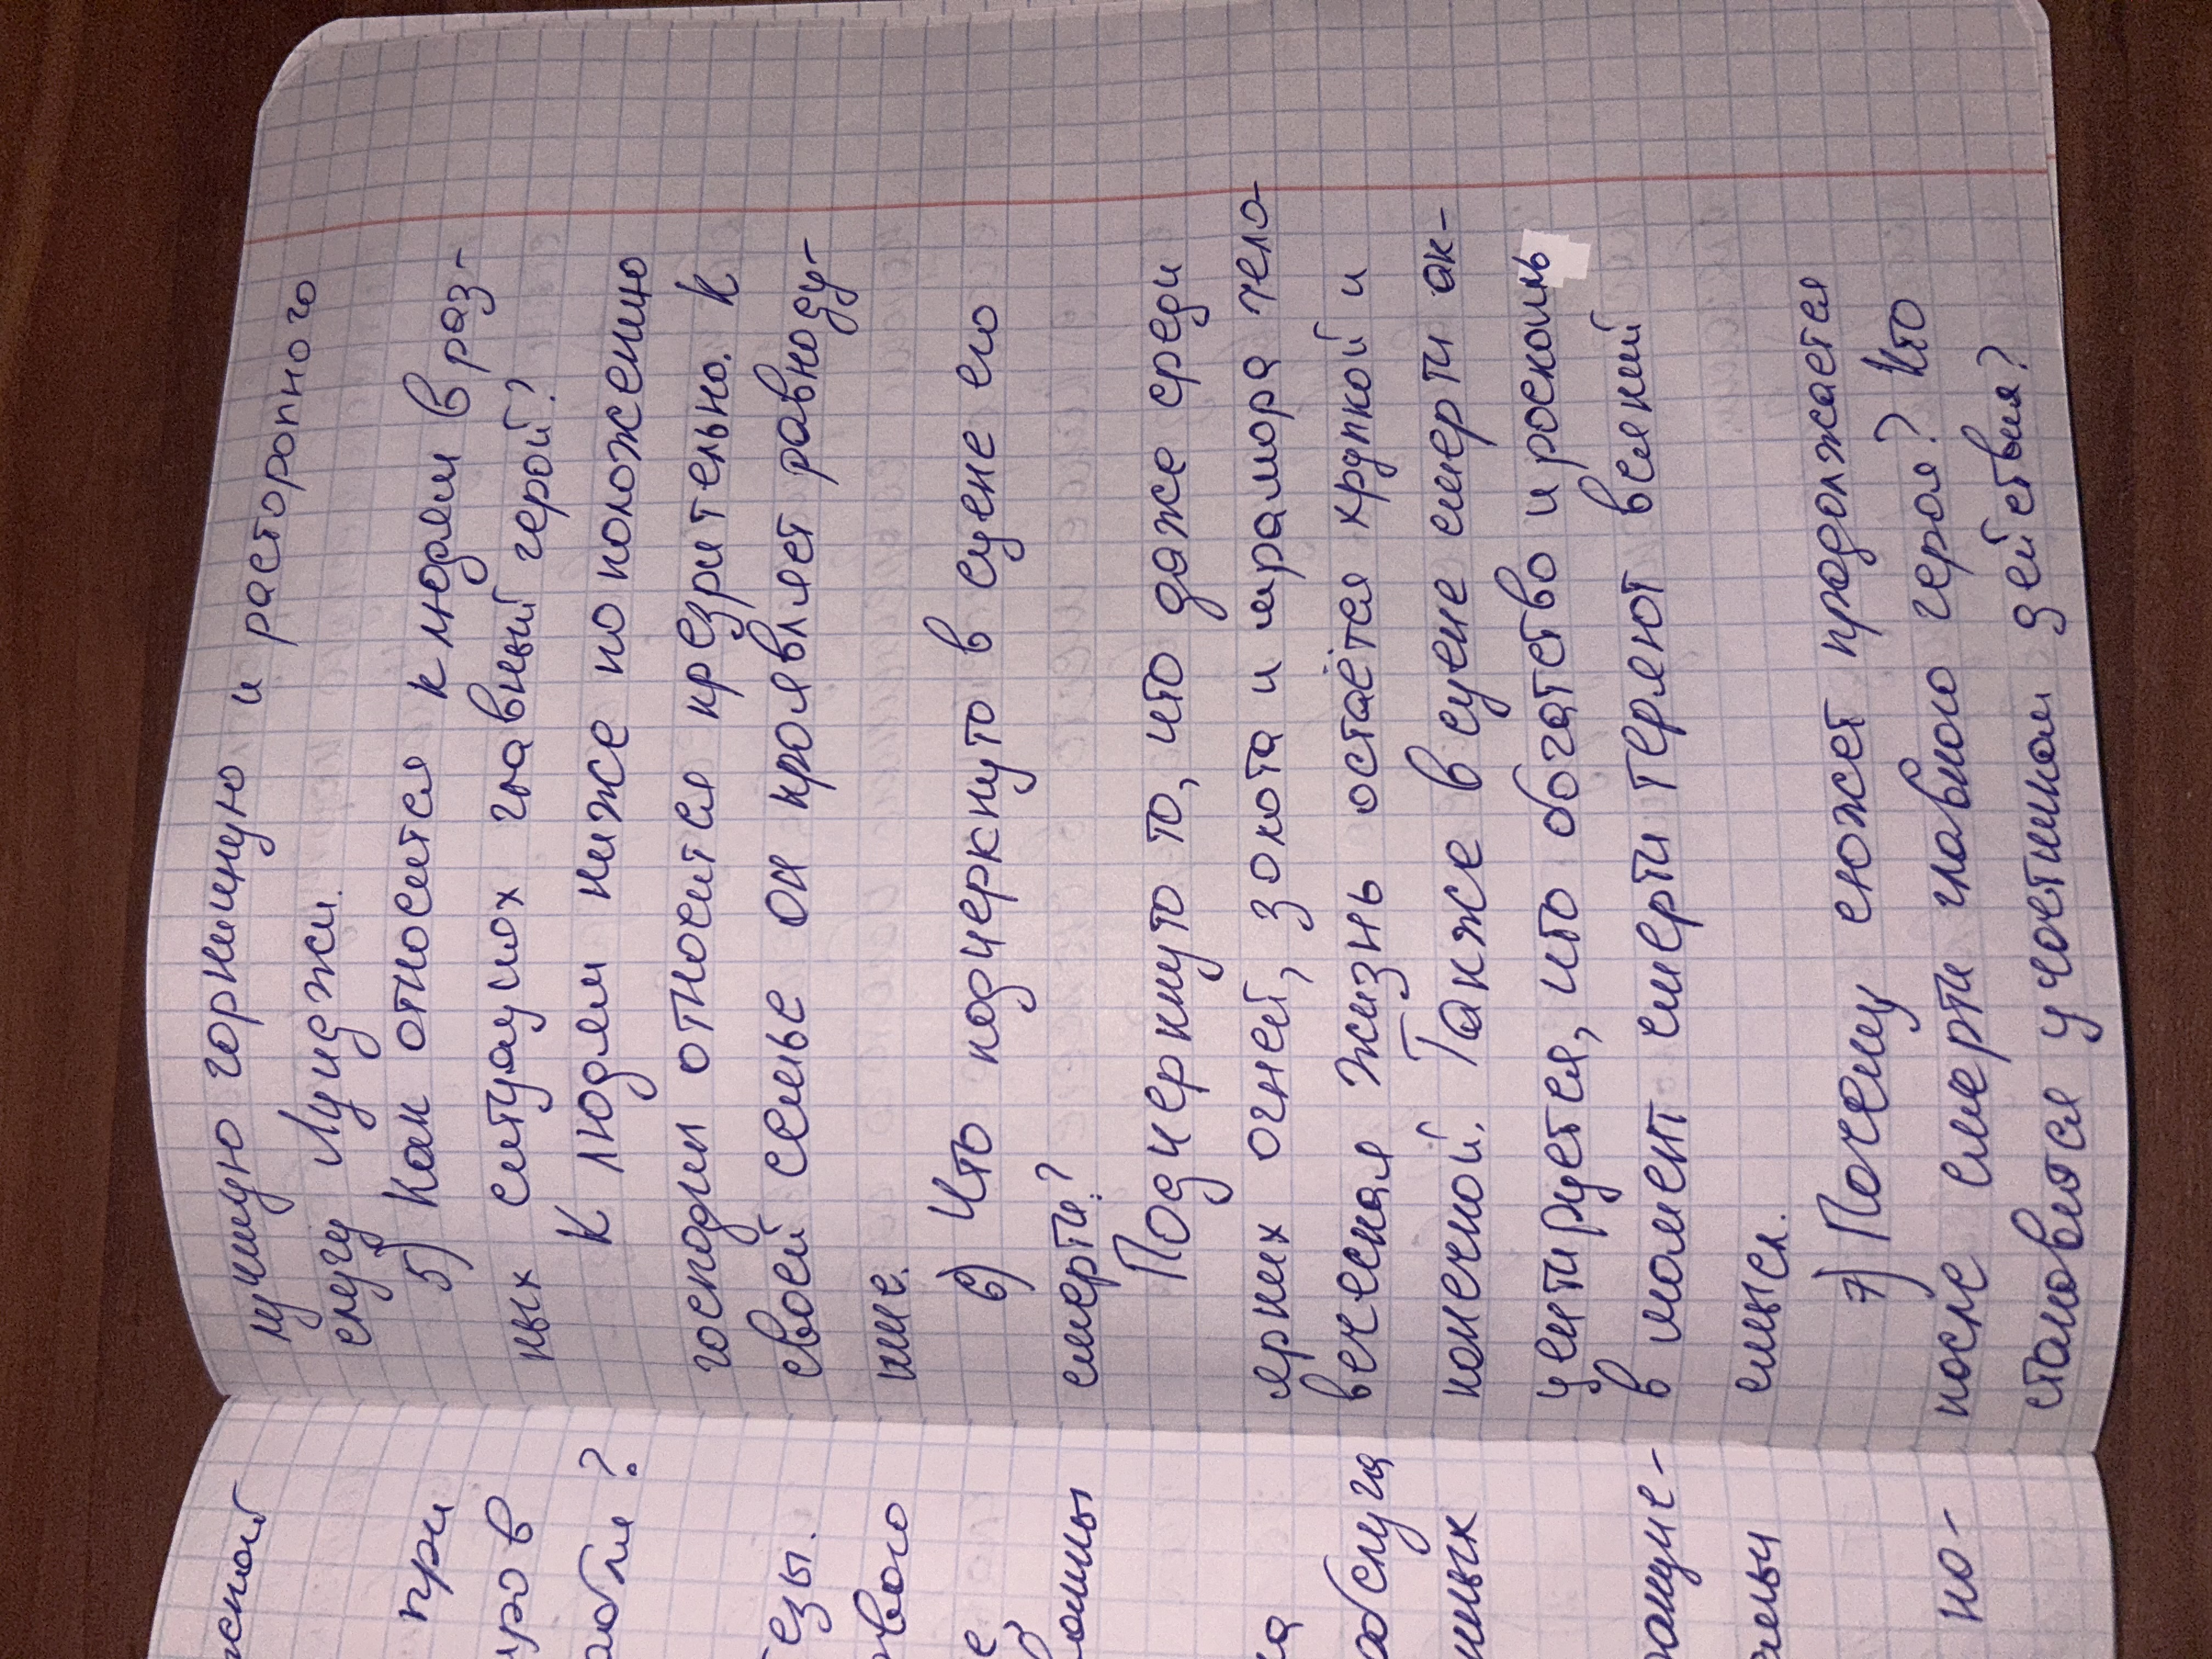 лучшую горничную и расторопного
слугу Луиджи.
5) Как относится к людям в раз-
ных ситуациях главный герой?
К людям ниже по положению
господин относится презрительно. К
своей семье он проявляет равноду-
шие.
6) Что подчеркнуто в сцене его
смерти?
Подчеркнуто то, что даже среди
ярких огней, золота и мрамора чело-
веческая жизнь остаётся хрупкой и
конечной. Также в сцене смерти ак-
центируется, что богатство и роскошь
в момент смерти теряют всякий
смысл.
7) Почему сюжет продолжается
после смерти главного героя? Кто
становится участником действия?
при
уров
езы.
вого
обслуга
но-